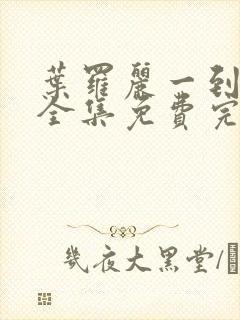 葉羅麗一到
全集免費完
幾夜大黑堂/